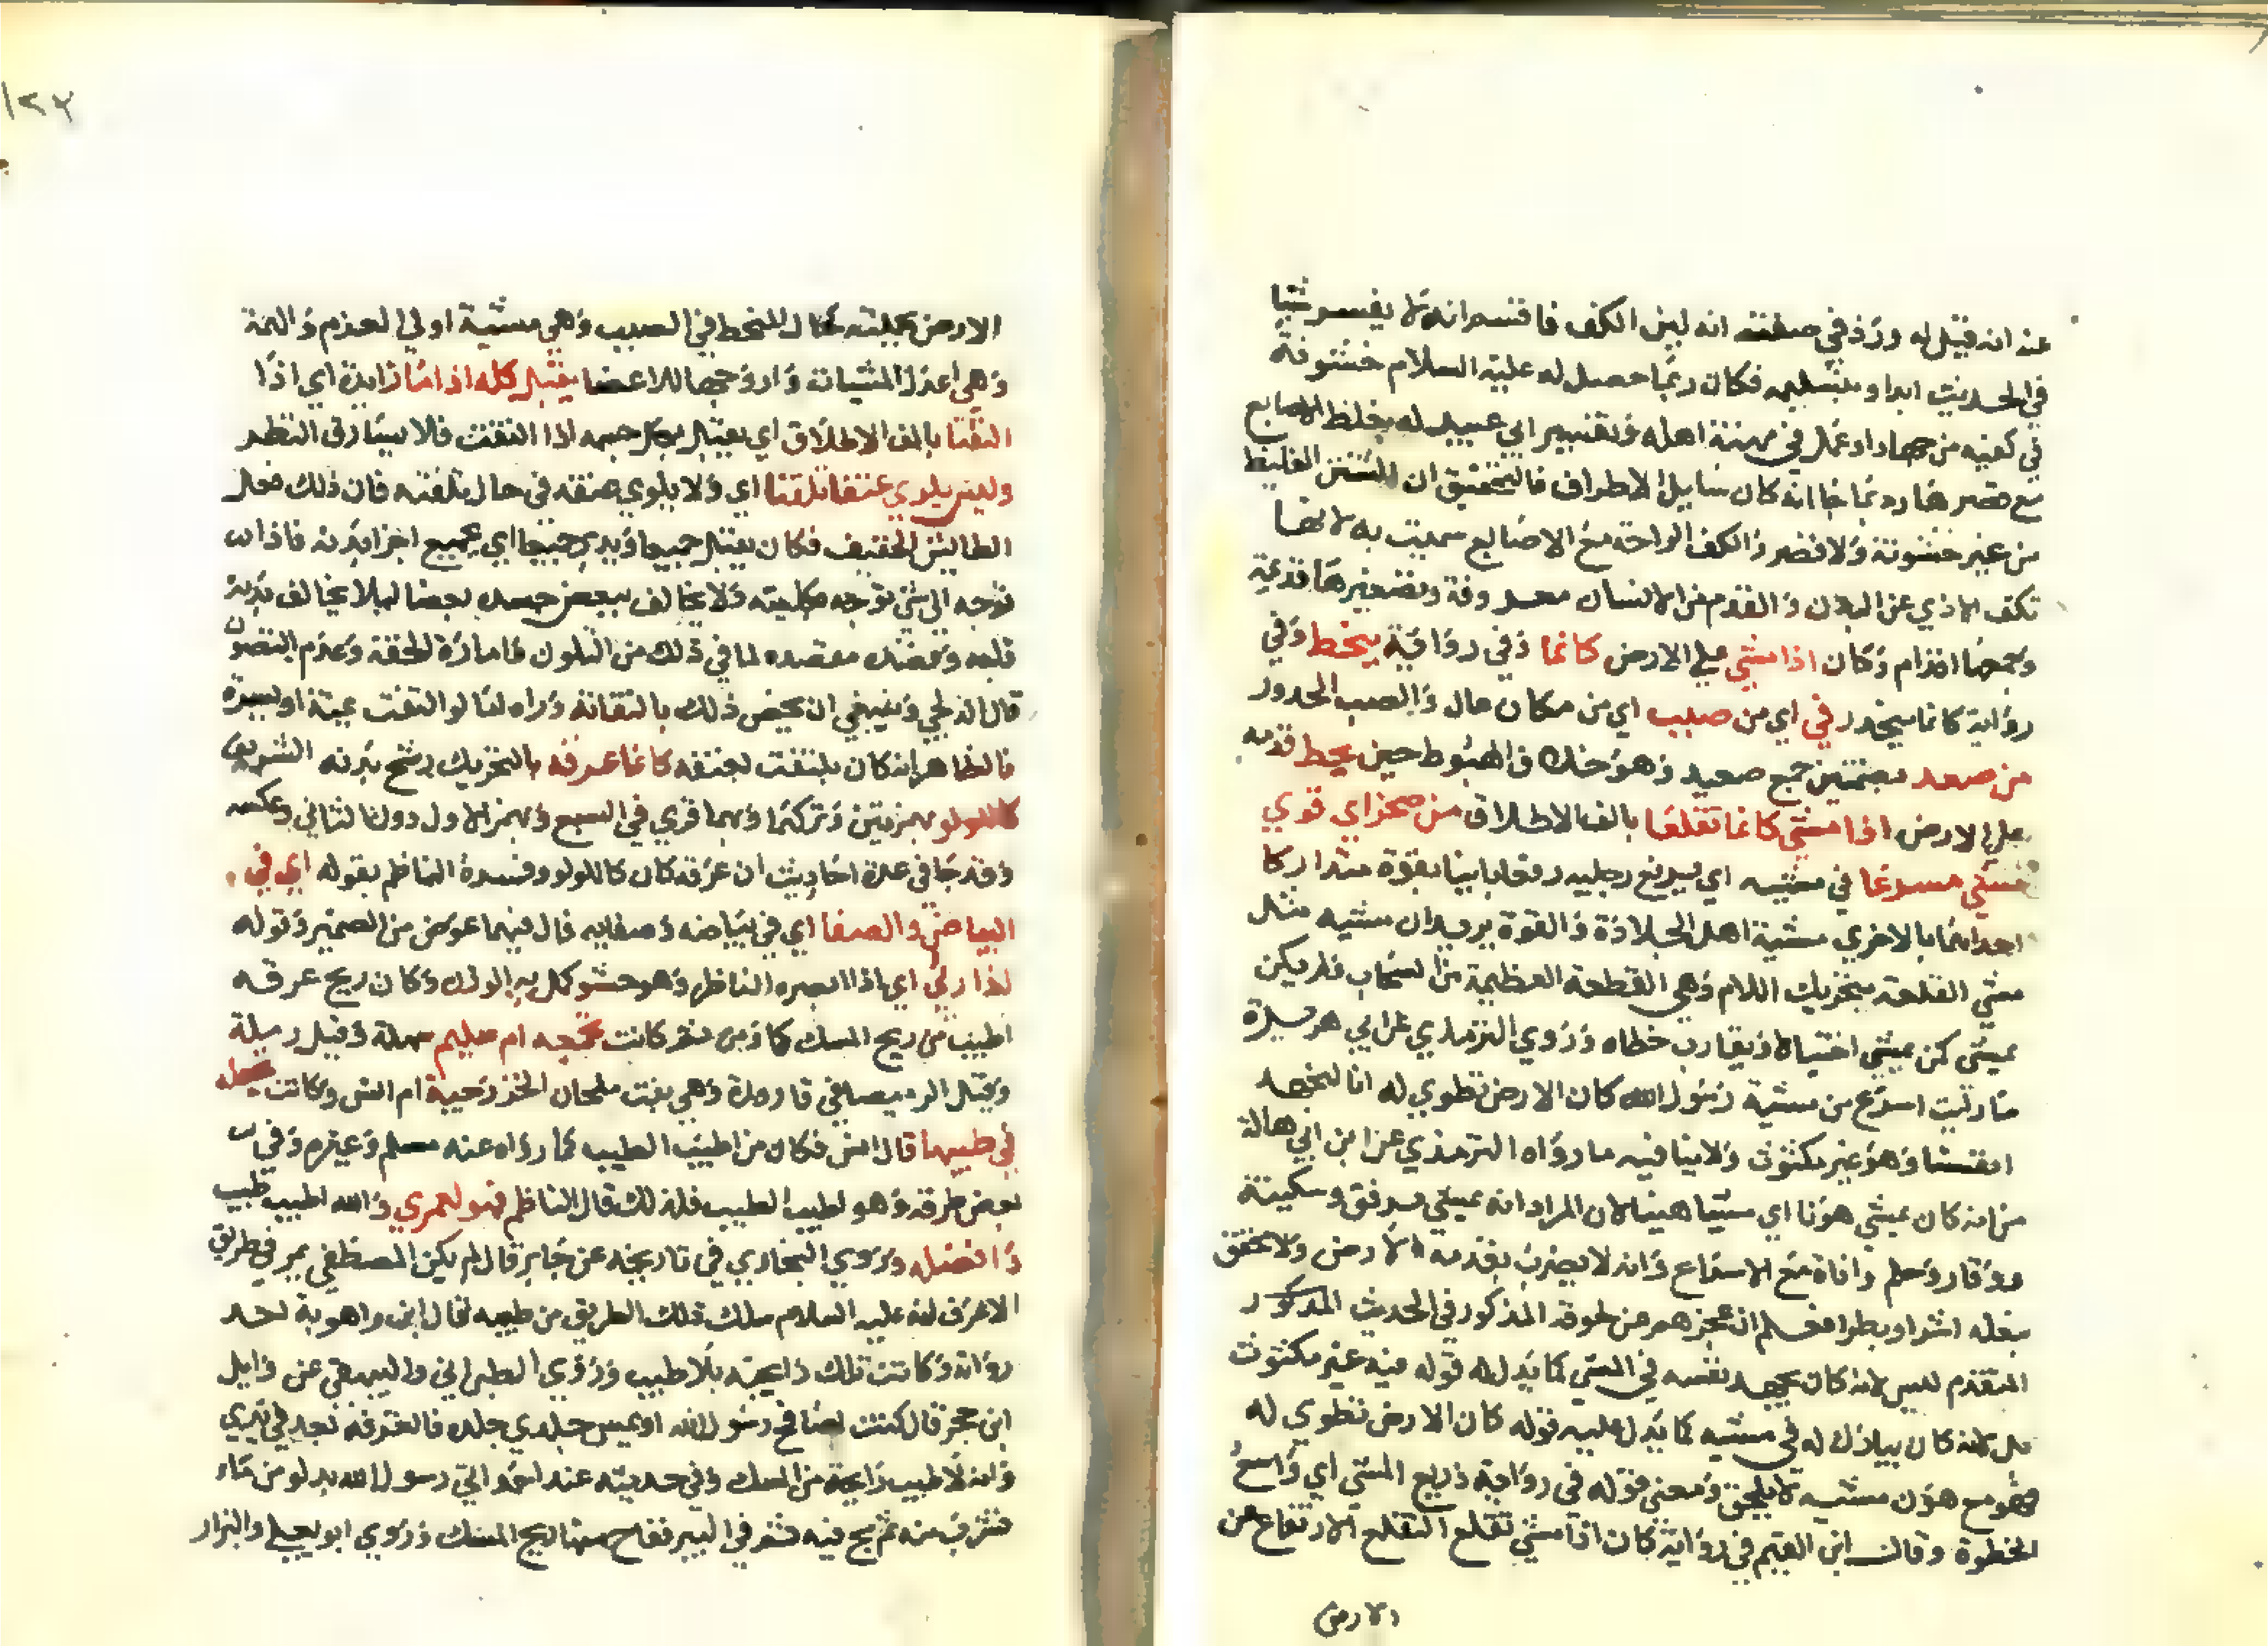 عنه انه قيل له ورد في صفته انه لين الكف فاقسم انه لا يفسر شيا
في الحديث ابدا فكان ربما حصل له عليه السلام خشونة
في كفيه من جهاد او عمل في مهنة اهله وتفسير ابي عبيد له بغلظ الاصابع
مع قصر بما جا انه كان سايل الاطراف فالتحقيق ان الشثن الغليظ
من غير خشونة ولا قصر والكف الراحة مع الاصابع سميت به لانها
تكف الاذي عن البدن والقدم من الانسان معروفة وتصغيرها قديمة
وجمعها اقدام وكان اذا مشي علي الارض كانما وفي رواية ينحط وفي
رواية كانما ينحدر في اي من صبب اي من مكان عال والصبب الحدور
من صعد بضمتين جمع صعيد وهو خلاف الهبوط حين يحط قدمه
علي الارض اذا مشي كانما تقلعا بالف الاطلاق من صخر اي قوي
مشي مسرعا في مشيه اي يرفع رجليه رفعا باينا بقوة متداركا
احداهما بالاخري مشية اهل الجلادة والقوة يريد ان مشيه مثل
مشي القلعة بتحريك اللام وهي القطعة العظيمة من السحاب فلم يكن
يمشي كمن يمشي اختيالا ويقارب خطاه وروي الترمذي عن ابي هريرة
ما رايت اسرع من مشية رسول الله كان الارض تطوي له انا لنجهد
انفسنا وهو غير مكترث ولا ينافيه ما رواه الترمذي عن ابن ابي هالة
من انه كان يمشي هونا اي مشيا هينا لان المراد انه يمشي برفق وسكينة
ووقار وحلم واناة مع الاسراع وانه لا يضرب بقدمه الارض ولا يخفق
بنعله اشرا وبطرا فعلم ان عجزهم عن لحوقه المذكور في الحديث المذكور
المتقدم ليس لانه كان يجهد نفسه في المشي كما يدل له قوله فيه غير مكترث
بل لانه كان يبارك له في مشيه كما يدل عليه قوله كان الارض تطوي له
فهو مع هون مشيه لا يلحق ومعني قوله في رواية ذريع المشي اي واسع
الخطوة وقال ابن القيم في رواية كان اذا مشي تقلع التقلع الارتفاع من
الارض
١٢٢
الارض بجملته كحال المنحط في الصبب وهي مشية اولي العزم والهمة
وهي اعدل المشيات واروحها للاعضا يقبل كله اذا ما زايدة اي اذا
التفتا بالف الاطلاق اي يقبل بكل جسمه اذا التفت فلا يسارق النظر
وليس يلوي عنقا تلفتا اي ولا يلوي عنقه في حال تلفته فان ذلك فعل
الطايش الخفيف فكان يقبل جميعا ويدبر جميعا اي بجميع اجزا بدنه فاذا
توجه الي شي توجه بكليته ولا يخالف ببعض جسده بعضا ليلا يخالف بدنه
قلبه وقصده مقصده لما في ذلك من التلون وامارة الخفة وعدم التصون
قال الدلجي وينبغي ان يخص ذلك بالتفاته وراه اما لو التفت يمنة او يسرة
فالظاهر انه كان يلتفت بعنقه كانما عرقه بالتحريك رشح بدنه الشريف
كاللولو بهمزتين وتركهما وبهما قري في السبع وبهمز الاول دون الثاني وعكسه
وقد جا في عدة احاديث ان عرقه كان كاللولو وفسره الناظم بقوله اي في
البياض والصفا اي في بياضه وصفايه فال فيهما عوض من الضمير وقوله
اذا رئي اي اذا ابصره الناظر وهو حشو كمل به الوزن وكان ريح عرقه
اطيب من ريح المسك كان ومن ثم كانت تجمعه ام سليم سهلة وقيل رميلة
وقيل الرميصا وهي بنت ملحان الخزرجية ام انس وكانت تجعله
في طيبها قال انس فكان من اطيب الطيب كما رواه عنه مسلم وغيره وفي
بعض طرقه وهو اطيب الطيب فلذلك قال الناظم فهو لعمري والله اطيب طيب
وافضله وروي البخاري في تاريخه عن جابر قال لم يكن المصطفي يمر في طريق
الا عرف انه عليه السلام سلك ذلك الطريق من طيبه قال ابن راهوية احد
رواته وكانت تلك رايحته بلا طيب وروي الطبراني والبيهقي عن وايل
ابن حجر قال كنت اصافح رسول الله او يمس جلدي جلده فاتعرفه بعد في يدي
وانه لاطيب رايحة من المسك وفي حديثه عند احمد اتي رسول الله بدلو من ماء
فشرب منه ثم مج فيه ثم في البير ففاح منها ريح المسك وروي ابو يعلي والبزار